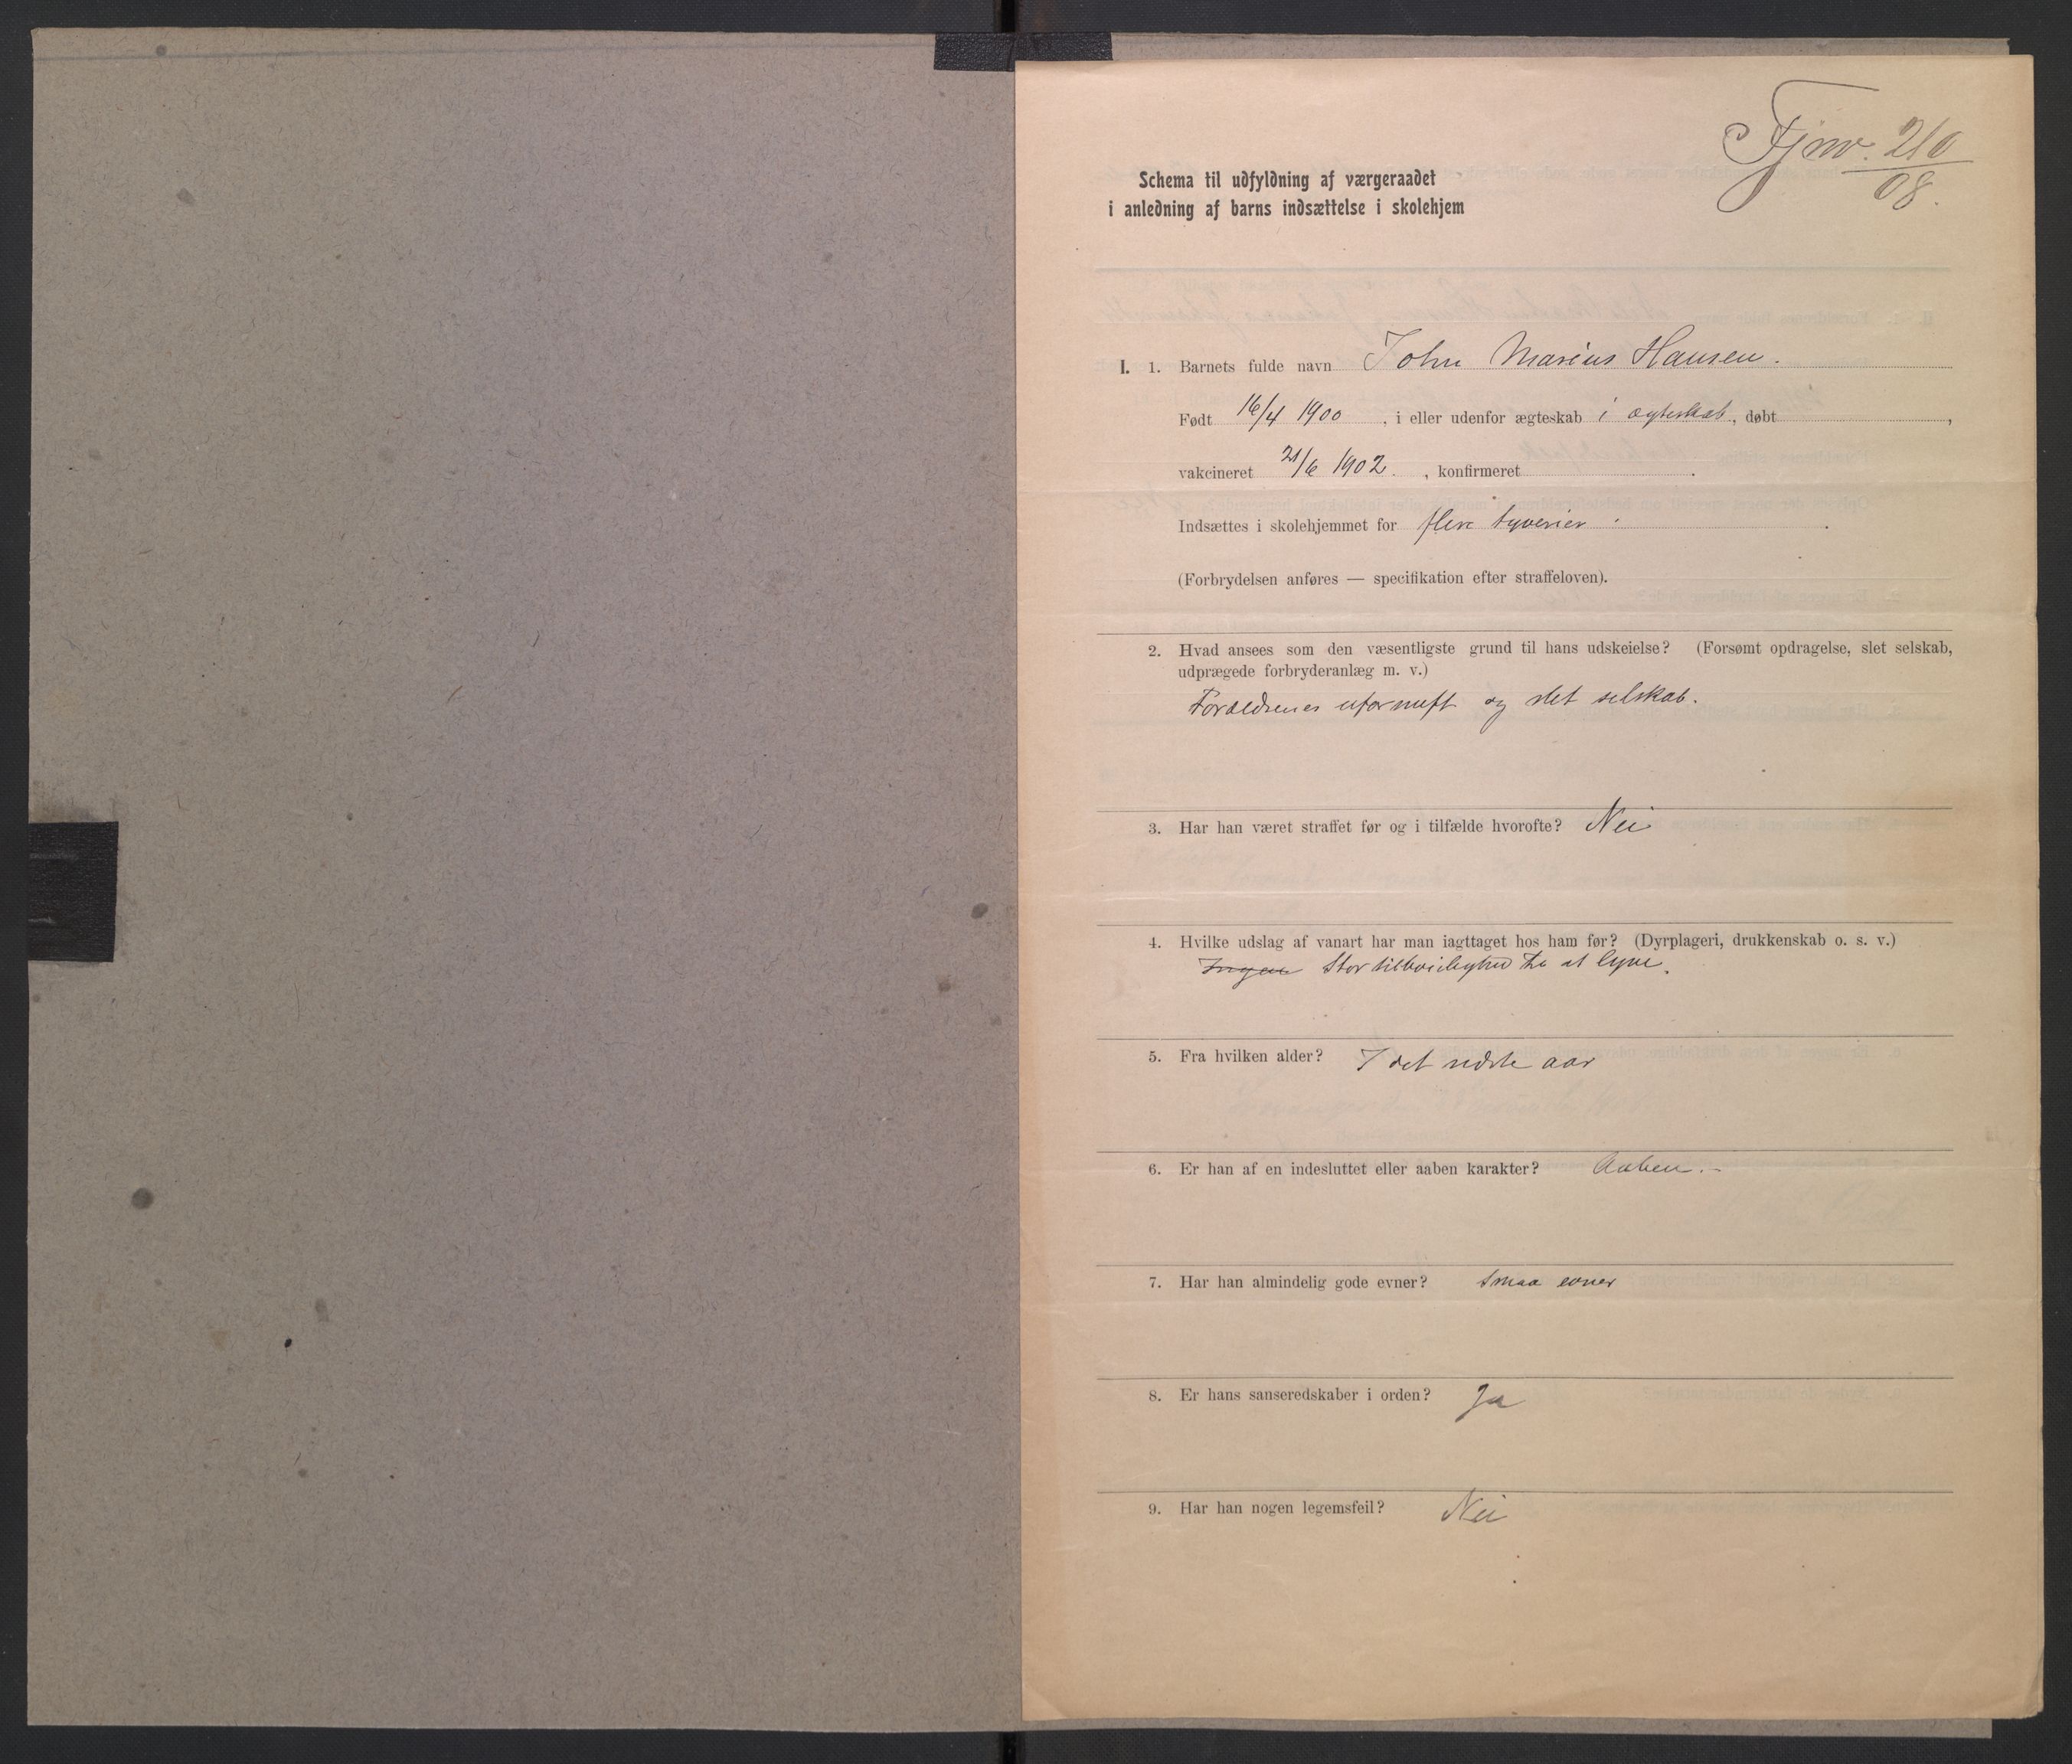 Fjnr. 210
08.
Schema til udfyldning af værgeraadet
i anledning af barns indsættelse i skolehjem
I. 1. Barnets fulde navn John Marius Hansen.
Født 16/4 1900, i eller udenfor ægteskab i ægteskab, døbt ,
vakcineret 21/6 1902., konfirmeret .
Indsættes i skolehjemmet for flere tyverier.
(Forbrydelsen anføres — specifikation efter straffeloven).
2. Hvad ansees som den væsentligste grund til hans udskeielse? (Forsømt opdragelse, slet selskab,
udprægede forbryderanlæg m. v.)
Forældrenes ufornuft og slet selskab.
3. Har han været straffet før og i tilfælde hvorofte? Nei
4. Hvilke udslag af vanart har man iagttaget hos ham før? (Dyrplageri, drukkenskab o. s. v.)
Ingen Stor tilbøielighed til at lyve.
5. Fra hvilken alder? I det sidste aar
6. Er han af en indesluttet eller aaben karakter? Aaben.-
7. Har han almindelig gode evner? smaa evner
8. Er hans sanseredskaber i orden? Ja
9. Har han nogen legemsfeil? Nei